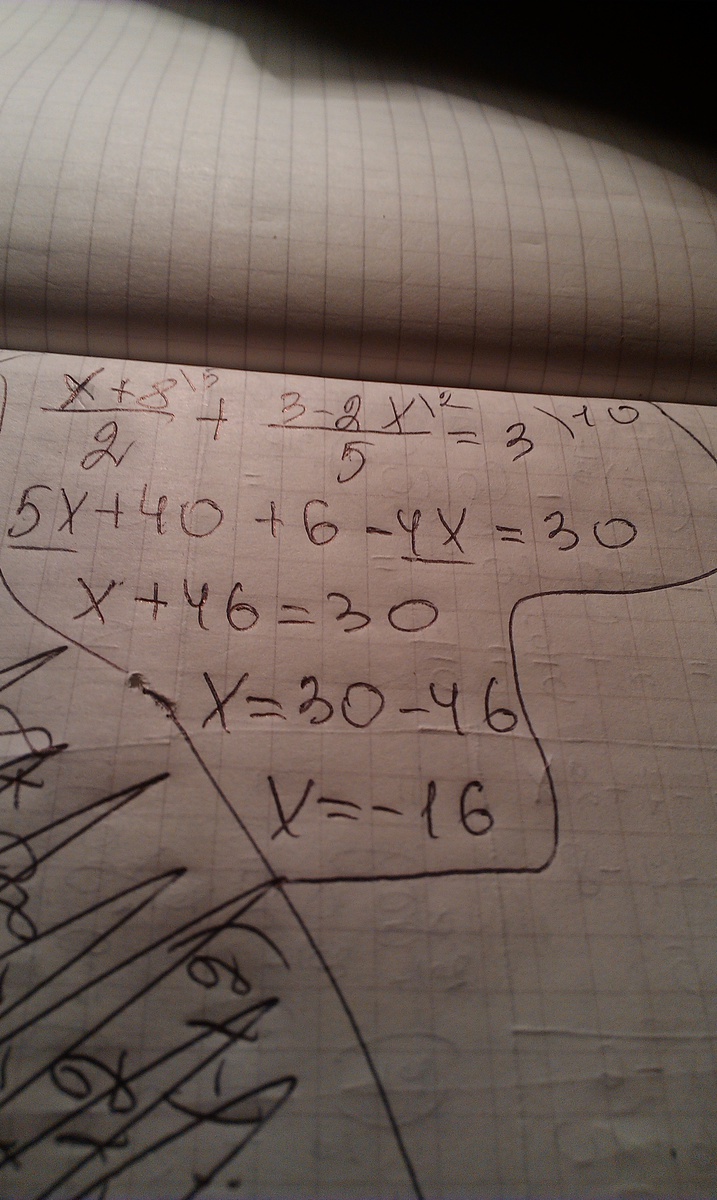 x+8\5/2 + 3-2x\2/5 = 3\10
5x+40 +6 -4x = 30
x+46=30
x=30-46
x=-16